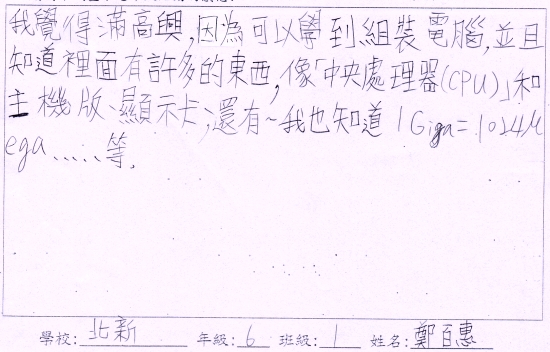 我覺得滿高興,因為可以學到組裝電腦,並且
知道裡面有許多的東西,像「中央處理器(CPU)」和
主機版、顯示卡,還有~我也知道1Giga=1024M
ega.....等.
學校:北新 年級:6 班級:1 姓名:鄭百惠